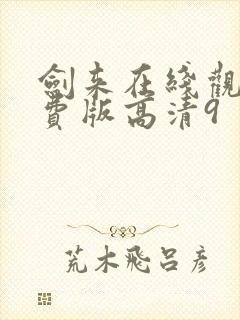 劍来在綫觀
費版高清9
荒木飛呂彦